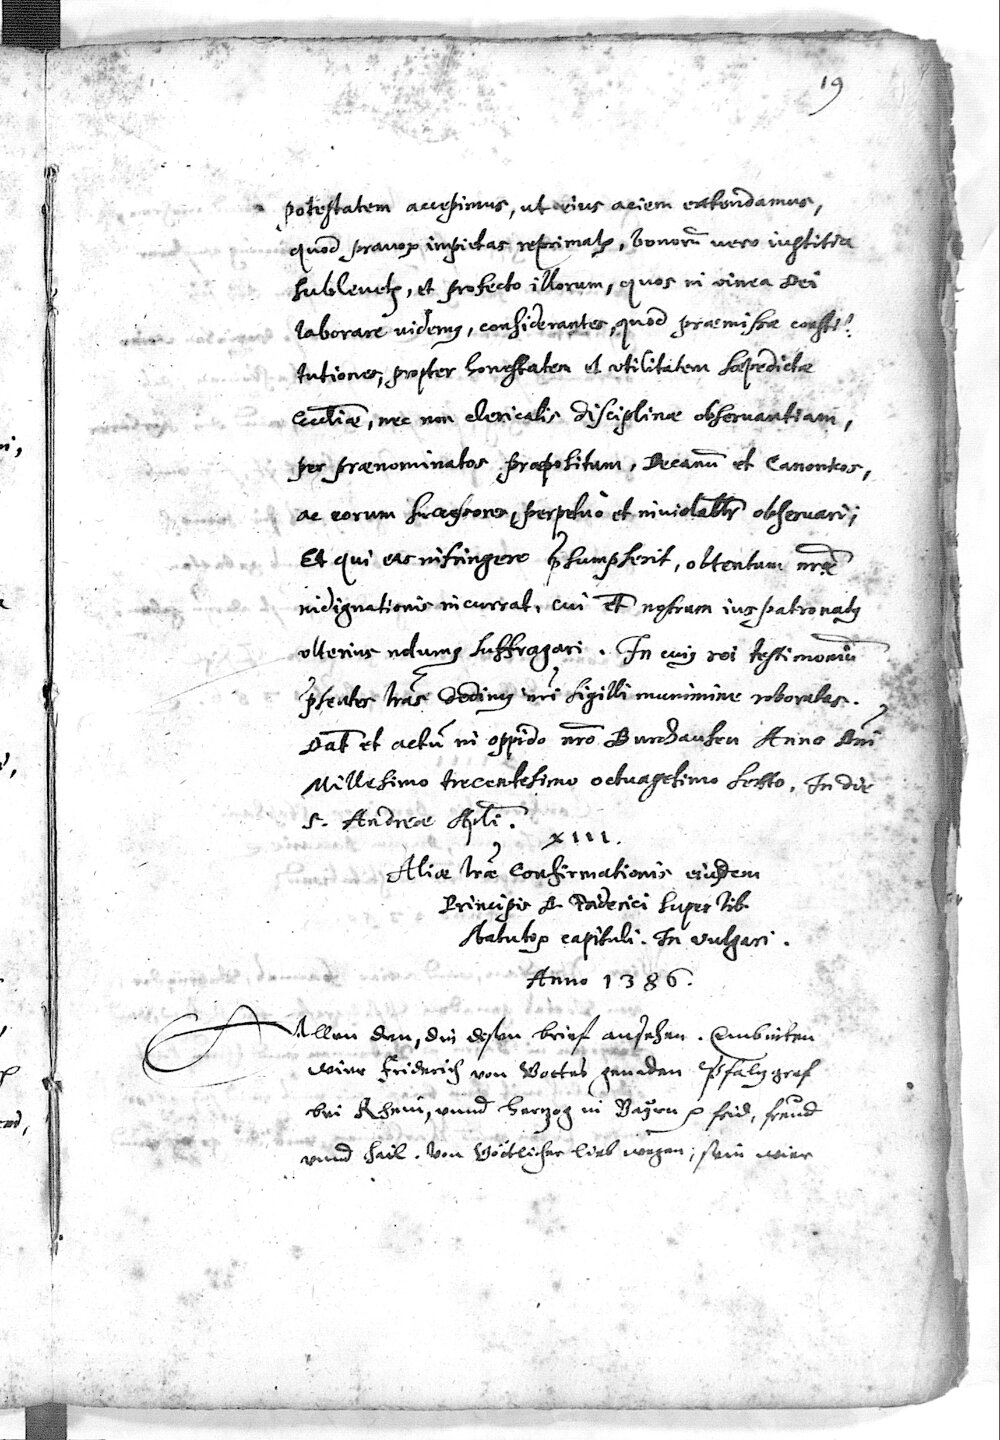 19
potestatem accepimus, ut eius aciem extendamus,
quod pravoꝝ impietas reprimatꝛ, bonorū vero iustitia
sublevetꝛ, et profecto illorum, quos in vinea Dei
laborare videmꝰ, considerantes, quod præmissæ consti-
tutiones, propter honestatem et utilitatem sæpedictæ
Eccliæ, nec non clericalis disciplinæ observantiam,
per prænominatos Præpositum, Decanū et Canonicos,
ac eorum successores, perpetuo et inviolablr observari;
Et qui eas infringere p̄sumpserit, obtentum nr̄æ
indignationis incurrat, cui et nostrum ius patronatꝰ
ulterius nolumꝰ suffragari. In cuiꝰ rei testimoniū
p̄sentes lr̄as dedimꝰ nr̄i sigilli munimine roboratas.
Dat et actū in oppido nr̄o Burchausen Anno Dn̄i
Millesimo trecentesimo octuagesimo sexto, In die
S. Andreæ Apli.
XIII.
Aliæ lr̄æ Confirmationis eiusdem
Principis D. Friderici super lib.
statutoꝝ capituli. In vulgari.
Anno 1386.
Allen den, die disen brief ansehen. Embieten
wier Friderich von Gottes genaden Pfaltzgraf
bei Rhein, unnd hertzog in Bayrn ꝛ frid, freud
unnd hail. Von Göttlicher lieb wegen, sein wier